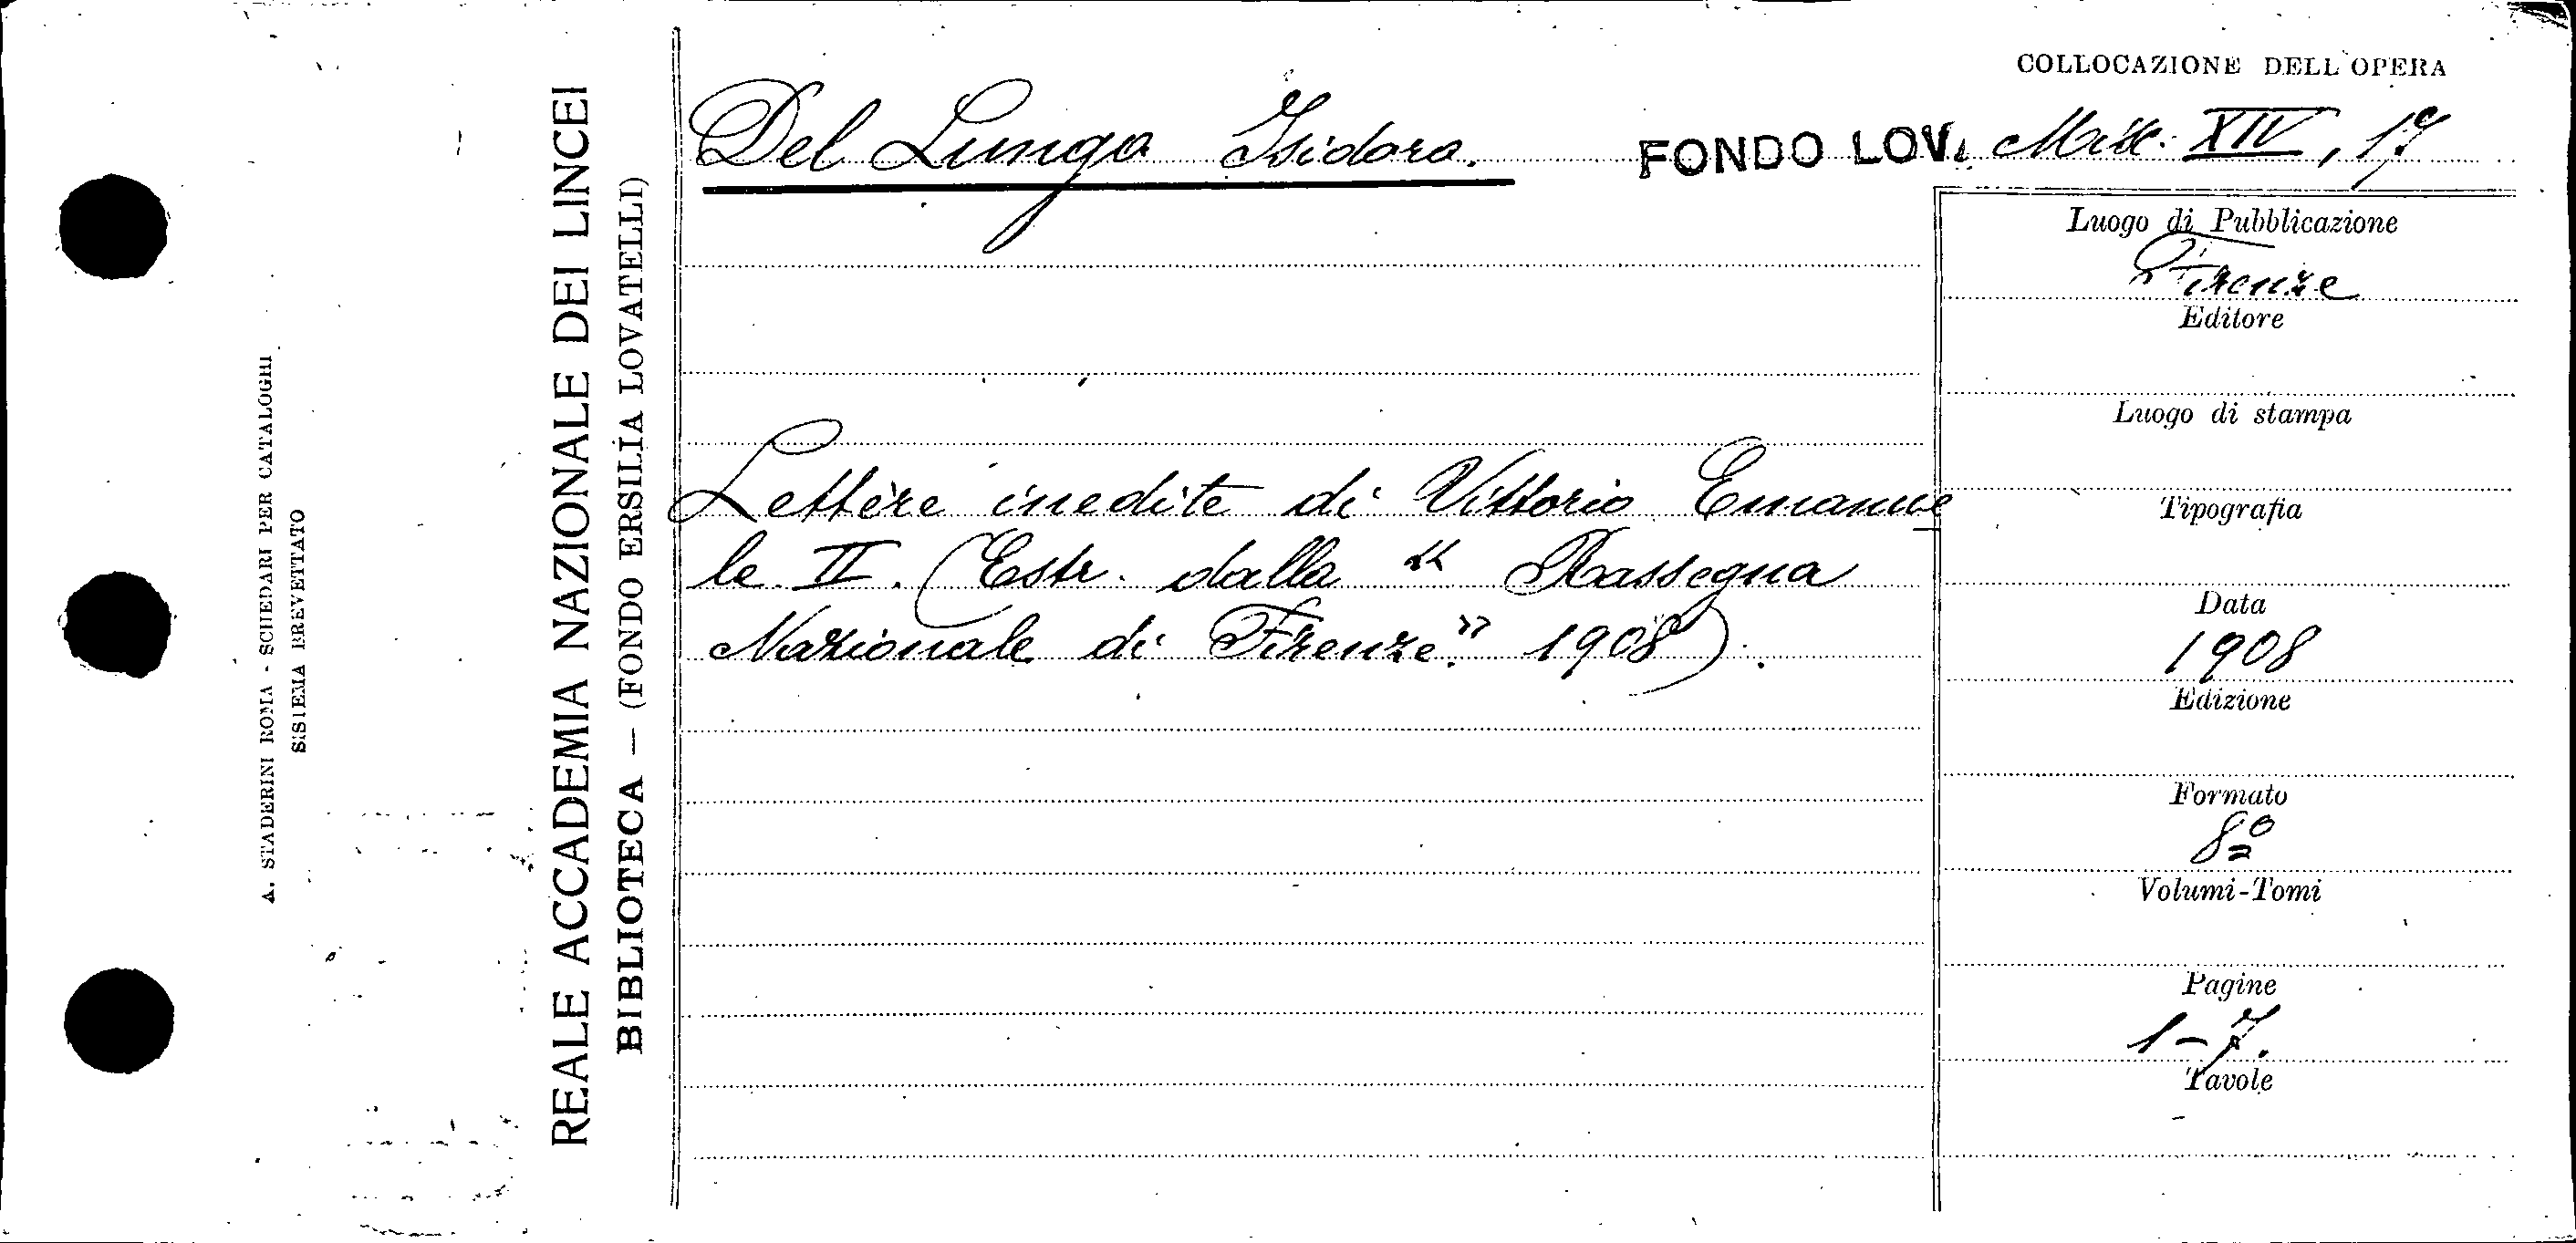 A. STADERINI ROMA - SCHEDARI PER CATALOGHI
SISTEMA BREVETTATO
REALE ACCADEMIA NAZIONALE DEI LINCEI
BIBLIOTECA — (FONDO ERSILIA LOVATELLI)
COLLOCAZIONE DELL'OPERA
Del Lungo Isidoro. FONDO LOV. Misc. XIV, 17
Lettere inedite di Vittorio Emanue
le II. (Estr. dalla "Rassegna
Nazionale di Firenze." 1908).
Luogo di Pubblicazione
Firenze
Editore
Luogo di stampa
Tipografia
Data
1908
Edizione
Formato
8º
Volumi-Tomi
Pagine
1-7.
Tavole